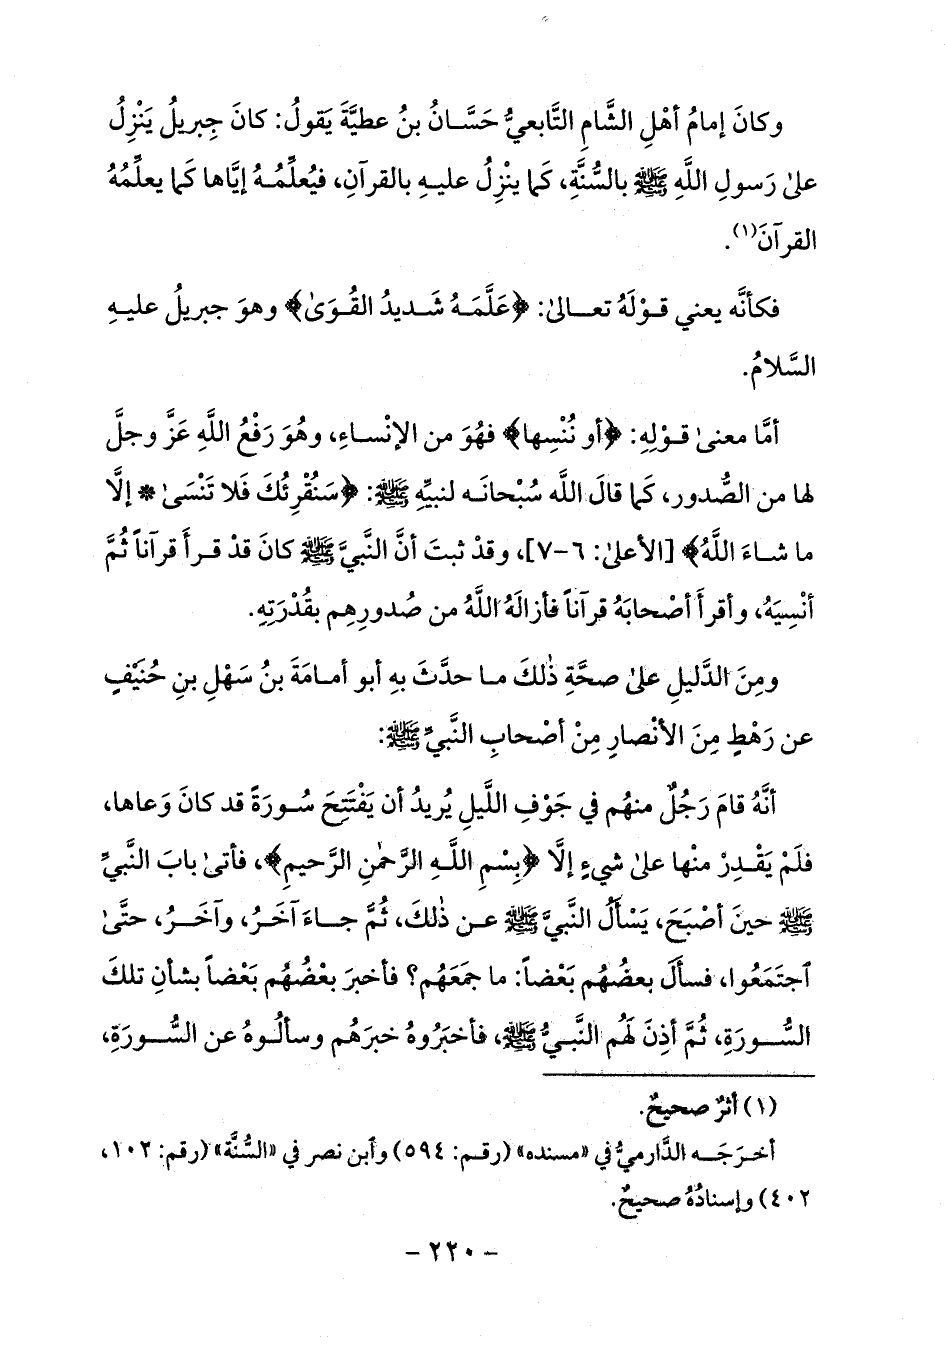 وكانَ إمامُ أهْلِ الشَّامِ التَّابعيُّ حَسَّانُ بنُ عطيَّةَ يَقولُ: كانَ جِبريلُ يَنْزِلُ
علىٰ رَسولِ اللَّهِ ﷺ بالسُّنَّةِ، كَما ينْزِلُ عليهِ بالقرآنِ، فيُعلِّمُهُ إيَّاها كَما يعلِّمُهُ
القرآنَ(١).
فكأنَّه يعني قوْلَهُ تعالىٰ: ﴿عَلَّمَهُ شَديدُ القُوَىٰ﴾ وهوَ جبريلُ عليهِ
السَّلامُ.
أمَّا معنىٰ قوْلِهِ: ﴿أو نُنْسِها﴾ فهُوَ من الإنْساءِ، وهُوَ رَفْعُ اللَّهِ عَزَّ وجلَّ
لها من الصُّدور، كَما قالَ اللَّه سُبْحانَه لنبيِّهِ ﷺ: ﴿سَنُقْرِئُكَ فَلا تَنْسَىٰ * إلَّا
ما شاءَ اللَّهُ﴾ [الأعلىٰ: ٦-٧]، وقدْ ثبتَ أنَّ النَّبيَّ ﷺ كانَ قدْ قرأَ قرآناً ثُمَّ
أنْسِيَهُ، وأقرأَ أصْحابَهُ قرآناً فأزالَهُ اللَّهُ من صُدورِهِم بقُدْرَتِهِ.
ومِنَ الدَّليلِ علىٰ صحَّةِ ذٰلكَ ما حدَّثَ بهِ أبو أمامَةَ بنُ سَهْلِ بنِ حُنَيْفٍ
عن رَهْطٍ مِنَ الأنْصارِ مِنْ أصْحابِ النَّبيِّ ﷺ:
أنَّهُ قامَ رَجُلٌ منهُم في جَوْفِ اللَّيلِ يُريدُ أن يَفْتَتِحَ سُورَةً قد كانَ وَعاها،
فلَمْ يَقْدِرْ منْها علىٰ شيءٍ إلَّا ﴿بِسْمِ اللَّهِ الرَّحمٰنِ الرَّحيمِ﴾، فأتىٰ بابَ النَّبيِّ
ﷺ حينَ أصْبَحَ، يَسْألُ النَّبيَّ ﷺ عن ذٰلكَ، ثُمَّ جاءَ آخَرُ، وآخَرُ، حتَّىٰ
ٱجتَمَعُوا، فسألَ بعضُهُم بَعْضاً: ما جمَعَهُم؟ فأخبرَ بعْضُهُم بَعْضاً بشأنِ تلكَ
السُّورَةِ، ثُمَّ أذِنَ لهُم النَّبيُّ ﷺ، فأخبَرُوهُ خبرَهُم وسألُوهُ عن السُّورَةِ،
(١) أثرٌ صحيحٌ.
أخرَجَه الدَّارميُّ في «مسنده» (رقم: ٥٩٤) وٱبن نصر في «السُّنَّة» (رقم: ١٠٢،
٤٠٢) وإسنادُهُ صحيحٌ.
- ٢٢٠ -